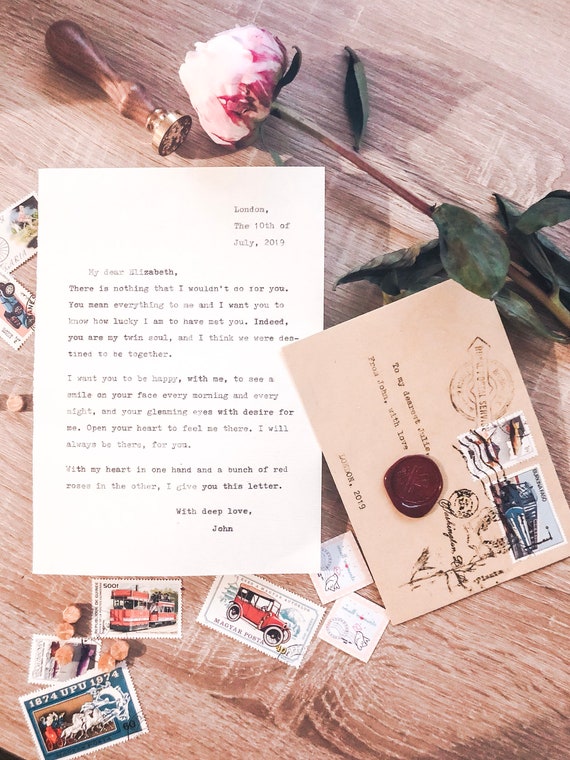 London,
The 10th of
July, 2019
My dear Elizabeth,
There is nothing that I wouldn't do for you.
You mean everything to me and I want you to
know how lucky I am to have met you. Indeed,
you are my twin soul, and I think we were des-
tined to be together.
I want you to be happy, with me, to see a
smile on your face every morning and every
night, and your gleaming eyes with desire for
me. Open your heart to feel me there. I will
always be there, for you.
With my heart in one hand and a bunch of red
roses in the other, I give you this letter.
With deep love,
John
To my dearest Julie,
From John, with love
LONDON, 2019
500F
MAGYAR POSTA
1874 UPU 1974